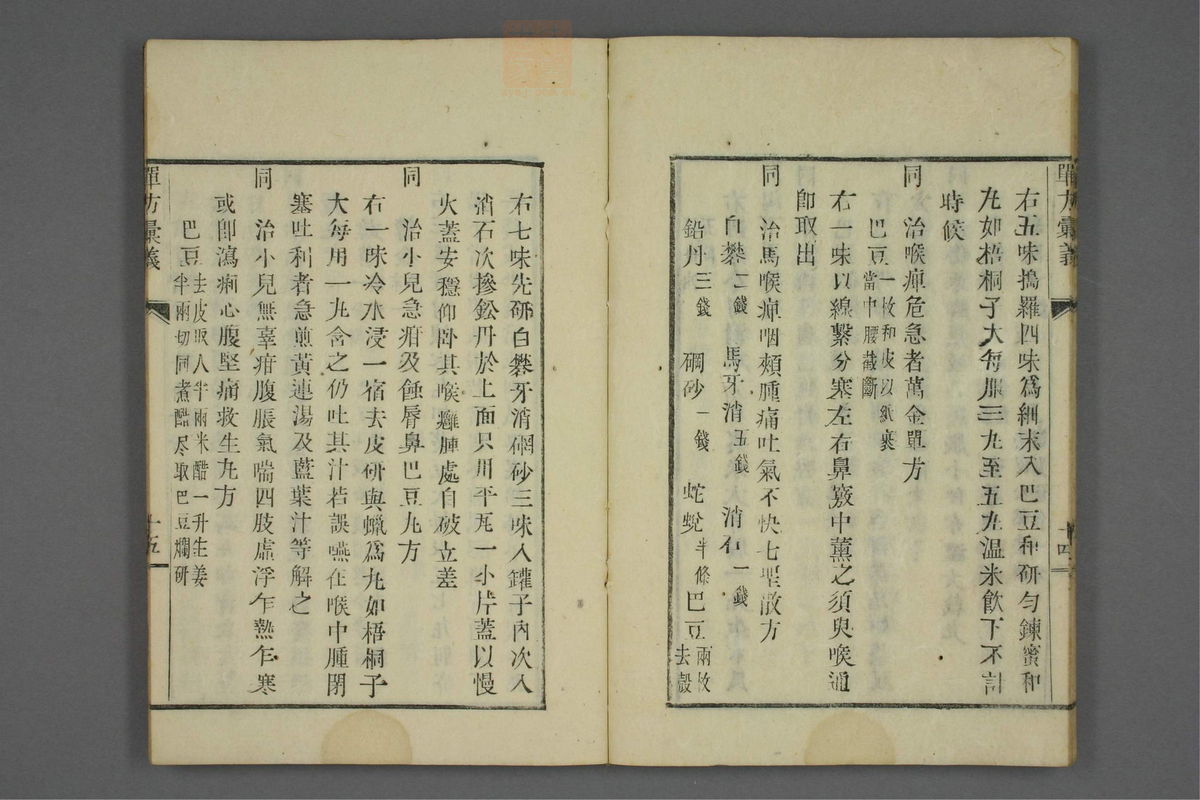 單方彙義
十四
右五味搗羅四味爲細末入巴豆和研勻鍊蜜和
丸如梧桐子大每服三丸至五丸溫米飲下不計
時候
同 治喉痺危急者萬金單方
巴豆一枚和皮以紙裹當中腰截斷
右一味以線繫分塞左右鼻竅中薰之須臾喉通
卽取出
同 治馬喉痺咽頰腫痛吐氣不快七聖散方
白礬二錢 馬牙消五錢 消石一錢
鉛丹三錢 硇砂一錢 蛇蛻半條 巴豆兩枚去殼
右七味先研白礬牙消硇砂三味入鑵子內次入
消石次摻鈆丹於上面只用平瓦一小片蓋以慢
火蓋安穩仰臥其喉癰腫處自破立差
同 治小兒急疳及蝕脣鼻巴豆丸方
右一味冷水浸一宿去皮研與蠟爲丸如梧桐子
大每用一丸含之仍吐其汁若誤嚥在喉中腫閉
塞吐利者急煎黃連湯及藍葉汁等解之
同 治小兒無辜疳腹脹氣喘四肢虛浮乍熱乍寒
或卽瀉痢心腹堅痛救生丸方
巴豆去皮取人半兩米醋一升生姜半兩切同煮醋尽取巴豆爛研
單方彙義
十五